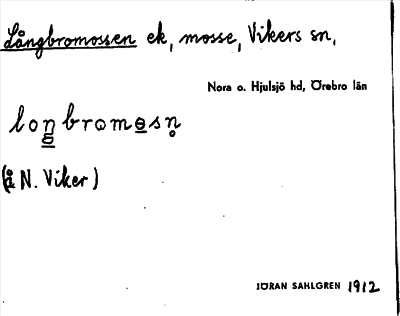 Långbromossen ek, mosse, Vikers sn.
Nora o. Hjulsjö hd, Örebro län
loŋbromɵsn̥
(å N. Viker)
JÖRAN SAHLGREN 1912